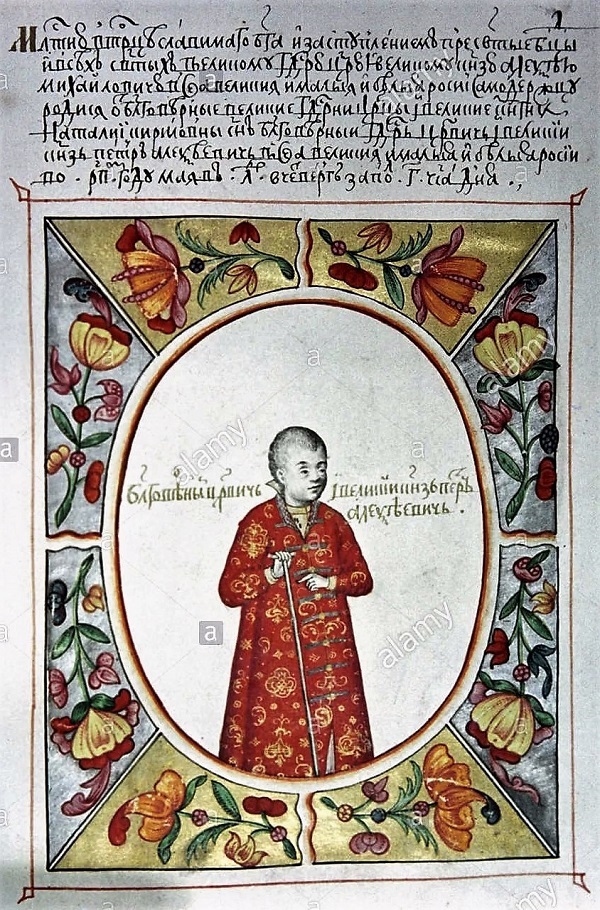 Млтию втрцы славимаго бга и заступлениемъ престые бцы
и всѣхъ стыхъ великому гдрю црю великому кнзю алеѯѣю
михайловичю всеа великия и малыя и бѣлыя росиї самодержцу
родися о благовѣрные великие гдрни црцы ї великие кнгни
наталиї кириловны снъ блговѣрныи гдрь црвичь ї великиї
кнзь петръ алеѯѣевичь всеа великия и малыя и бѣлыя росиї
по рп году мая въ л в четвергъ запол г часа дня
блговѣрныи црвичь ї великиї кнзь петръ
алеѯѣевичь.
alamy
alamy
alamy
alamy